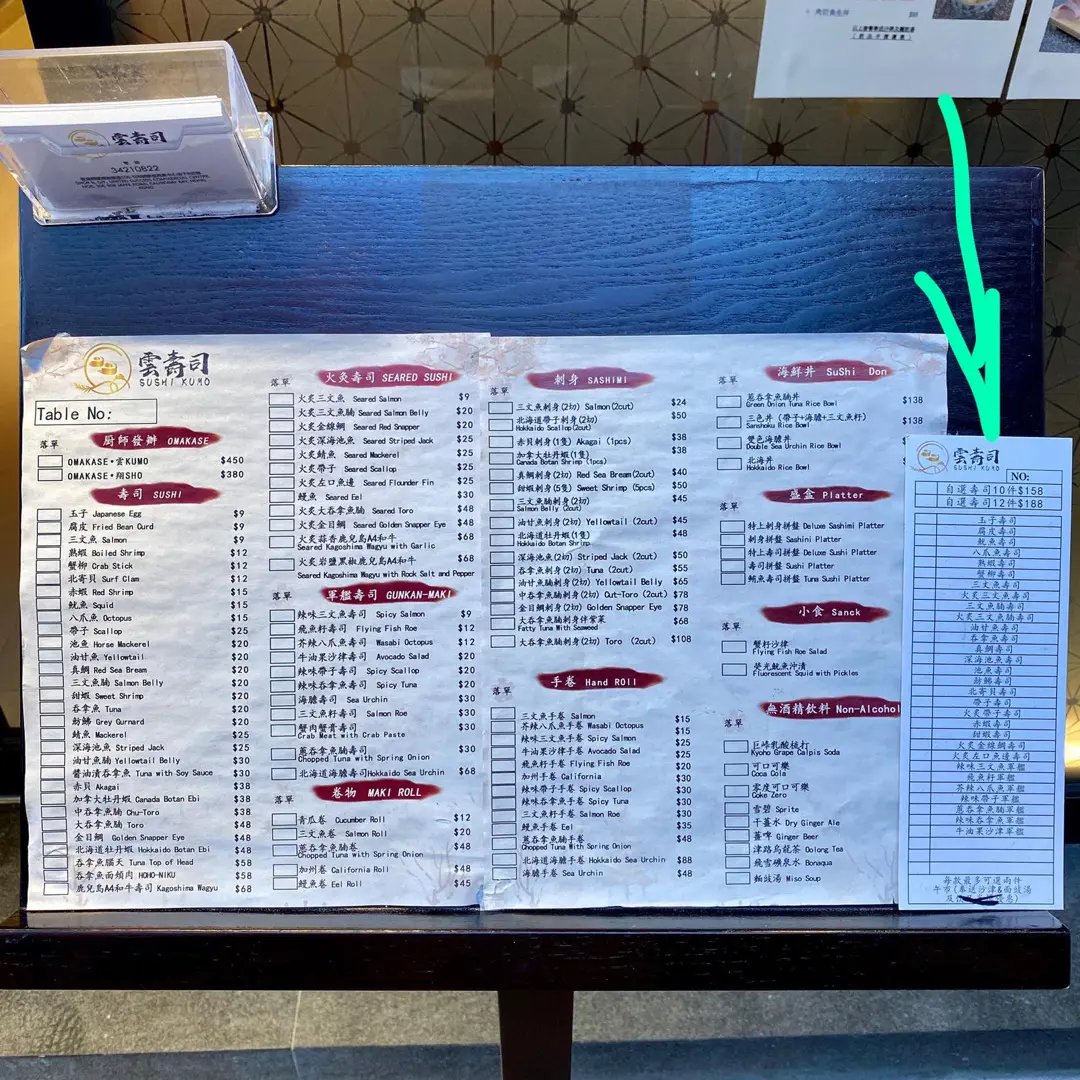 魚肉飯魚生丼
以上套餐均送沙律及麵豉湯
雲壽司
34210822
雲壽司
SUSHI KUMO
Table No:
落單
廚師發辦 OMAKASE
OMAKASE•雲KUMO $450
OMAKASE•翔SHO $380
壽司 SUSHI
玉子 Japanese Egg $9
腐皮 Fried Bean Curd $9
三文魚 Salmon $9
熟蝦 Boiled Shrimp $12
蟹柳 Crab Stick $12
北寄貝 Surf Clam $12
赤蝦 Red Shrimp $15
魷魚 Squid $15
八爪魚 Octopus $15
帶子 Scallop $25
池魚 Horse Mackerel $20
油甘魚 Yellowtail $20
真鯛 Red Sea Bream $20
三文魚腩 Salmon Belly $20
甜蝦 Sweet Shrimp $20
吞拿魚 Tuna $20
魴鮄 Grey Gurnard $20
鯖魚 Mackerel $25
深海池魚 Striped Jack $25
油甘魚腩 Yellowtail Belly $30
醬油漬吞拿魚 Tuna with Soy Sauce $30
赤貝 Akagai $38
加拿大牡丹蝦 Canada Botan Ebi $38
中吞拿魚腩 Chu-Toro $38
大吞拿魚腩 Toro $48
金目鯛 Golden Snapper Eye $48
北海道牡丹蝦 Hokkaido Botan Ebi $48
吞拿魚腦天 Tuna Top of Head $58
吞拿魚面頰肉 HOHO-NIKU $58
鹿兒島A4和牛壽司 Kagoshima Wagyu $68
落單
火炙壽司 SEARED SUSHI
火炙三文魚 Seared Salmon $9
火炙三文魚腩 Seared Salmon Belly $20
火炙金線鯛 Seared Red Snapper $20
火炙深海池魚 Seared Striped Jack $25
火炙鯖魚 Seared Mackerel $25
火炙帶子 Seared Scallop $25
火炙左口魚邊 Seared Flounder Fin $25
鰻魚 Seared Eel $30
火炙大吞拿魚腩 Seared Toro $48
火炙金目鯛 Seared Golden Snapper Eye $48
火炙蒜香鹿兒島A4和牛 $68
Seared Kagoshima Wagyu with Garlic
火炙岩鹽黑椒鹿兒島A4和牛 $68
Seared Kagoshima Wagyu with Rock Salt and Pepper
落單
軍艦壽司 GUNKAN-MAKI
辣味三文魚壽司 Spicy Salmon $9
飛魚籽壽司 Flying Fish Roe $12
芥辣八爪魚壽司 Wasabi Octopus $12
牛油果沙律壽司 Avocado Salad $20
辣味帶子壽司 Spicy Scallop $20
辣味吞拿魚壽司 Spicy Tuna $20
海膽壽司 Sea Urchin $30
三文魚籽壽司 Salmon Roe $30
蟹肉蟹膏壽司 $30
Crab Meat with Crab Paste
蔥吞拿魚壽司 $30
Chopped Tuna with Spring Onion
北海道海膽壽司Hokkaido Sea Urchin $68
落單
卷物 MAKI ROLL
青瓜卷 Cucumber Roll $12
三文魚卷 Salmon Roll $20
蔥吞拿魚腩卷 $48
Chopped Tuna with Spring Onion
加州卷 California Roll $48
鰻魚卷 Eel Roll $45
落單
刺身 SASHIMI
三文魚刺身(2切) Salmon(2cut) $24
北海道帶子刺身(2切) $50
Hokkaido Scallop(2cut)
赤貝刺身(1隻) Akagai (1pcs) $38
加拿大牡丹蝦(1隻) $38
Canada Botan Shrimp (1pcs)
真鯛刺身(2切) Red Sea Bream(2cut) $40
甜蝦刺身(5隻) Sweet Shrimp (5pcs) $50
三文魚腩刺身(2切) $45
Salmon Belly (2cut)
油甘魚刺身(2切) Yellowtail (2cut) $45
北海道牡丹蝦(1隻) $48
Hokkaido Botan Shrimp
深海池魚(2切) Striped Jack (2cut) $50
吞拿魚刺身(2切) Tuna (2cut) $55
油甘魚腩刺身(2切) Yellowtail Belly $65
中吞拿魚腩刺身(2切) Cut-Toro (2cut) $78
金目鯛刺身(2切) Golden Snapper Eye $78
大吞拿魚腩刺身伴紫菜 $68
Fatty Tuna With Seaweed
大吞拿魚腩刺身(2切) Toro (2cut) $108
手卷 Hand ROll
落單
三文魚手卷 Salmon $15
芥辣八爪魚手卷 Wasabi Octopus $15
辣味三文魚手卷 Spicy Salmon $25
牛油果沙律手卷 Avocado Salad $25
飛魚籽手卷 Flying Fish Roe $30
加州手卷 California $30
辣味帶子手卷 Spicy Scallop $30
辣味吞拿魚手卷 Spicy Tuna $30
三文魚籽手卷 Salmon Roe $30
鰻魚手卷 Eel $35
蔥吞拿魚腩手卷 $48
Chopped Tuna With Spring Onion
北海道海膽手卷 Hokkaido Sea Urchin $88
海膽手卷 Sea Urchin $48
落單
海鮮丼 SuShi Don
蔥吞拿魚腩丼 $138
Green Onion Tuna Rice Bowl
三色丼 (帶子+海膽+三文魚籽) $138
Sanshoku Rice Bowl
雙色海膽丼
Double Sea Urchin Rice Bowl
北海丼
Hokkaido Rice Bowl
盛盒 Platter
落單
特上刺身拼盤 Deluxe Sashimi Platter
刺身拼盤 Sashini Platter
特上壽司拼盤 Deluxe Sushi Platter
壽司拼盤 Sushi Platter
鮪魚壽司拼盤 Tuna Sushi Platter
小食 Sanck
落單
蟹籽沙律
Flying Fish Roe Salad
熒光魷魚沖漬
Fluorescent Squid with Pickles
無酒精飲料 Non-Alcohol
落單
巨峰乳酸梳打
Kyoho Grape Calpis Soda
可口可樂
Coca Cola
零度可口可樂
Coke Zero
雪碧 Sprite
干薑水 Dry Ginger Ale
薑啤 Ginger Beer
津路烏龍茶 Oolong Tea
飛雪礦泉水 Bonaqua
麵豉湯 Miso Soup
雲壽司
SUSHI KUMO
NO:
自選壽司10件$158
自選壽司12件$188
玉子壽司
腐皮壽司
魷魚壽司
八爪魚壽司
熟蝦壽司
蟹柳壽司
三文魚壽司
火炙三文魚壽司
三文魚腩壽司
火炙三文魚腩壽司
油甘魚壽司
吞拿魚壽司
真鯛壽司
深海池魚壽司
池魚壽司
魴鮄壽司
北寄貝壽司
帶子壽司
火炙帶子壽司
赤蝦壽司
甜蝦壽司
火炙金線鯛壽司
火炙左口魚邊壽司
辣味三文魚軍艦
飛魚籽軍艦
芥辣八爪魚軍艦
辣味帶子軍艦
蔥吞拿魚腩軍艦
辣味吞拿魚軍艦
牛油果沙津軍艦
每款最多可選兩件
午市(奉送沙津&面豉湯